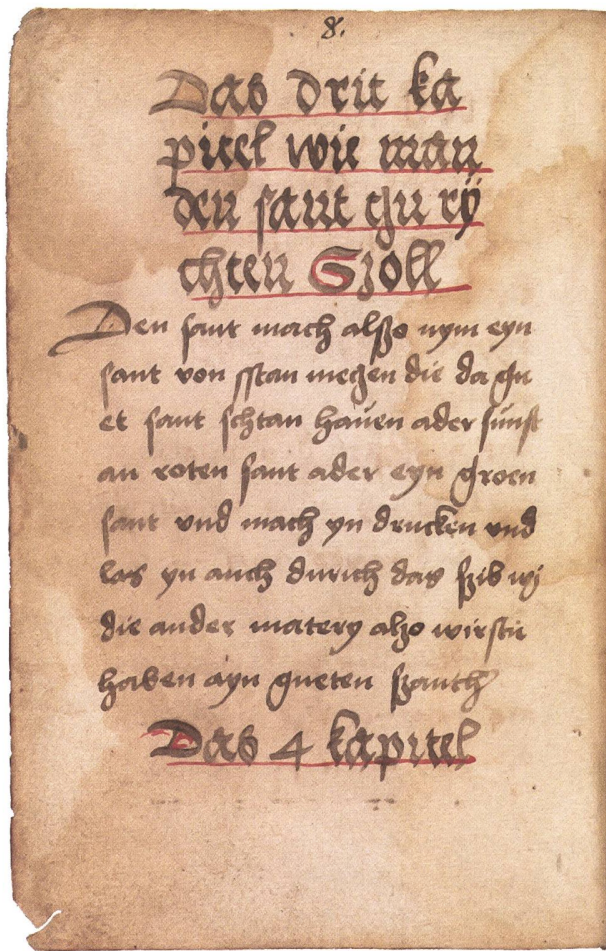 8.
Das drit ka
pitel wie man
den sant zu rÿ
chten Szoll
Den sant mach alßo nym eyn
sant von sstan meczen die da gu
et sant schtan hauen ader sunst
an roten sant ader eyn groen
sant vnd mach yn drucken vnd
las yn auch durich das szib wj
die ander matery alzo wirstu
haben ayn gueten szanth
Das 4 kapitel